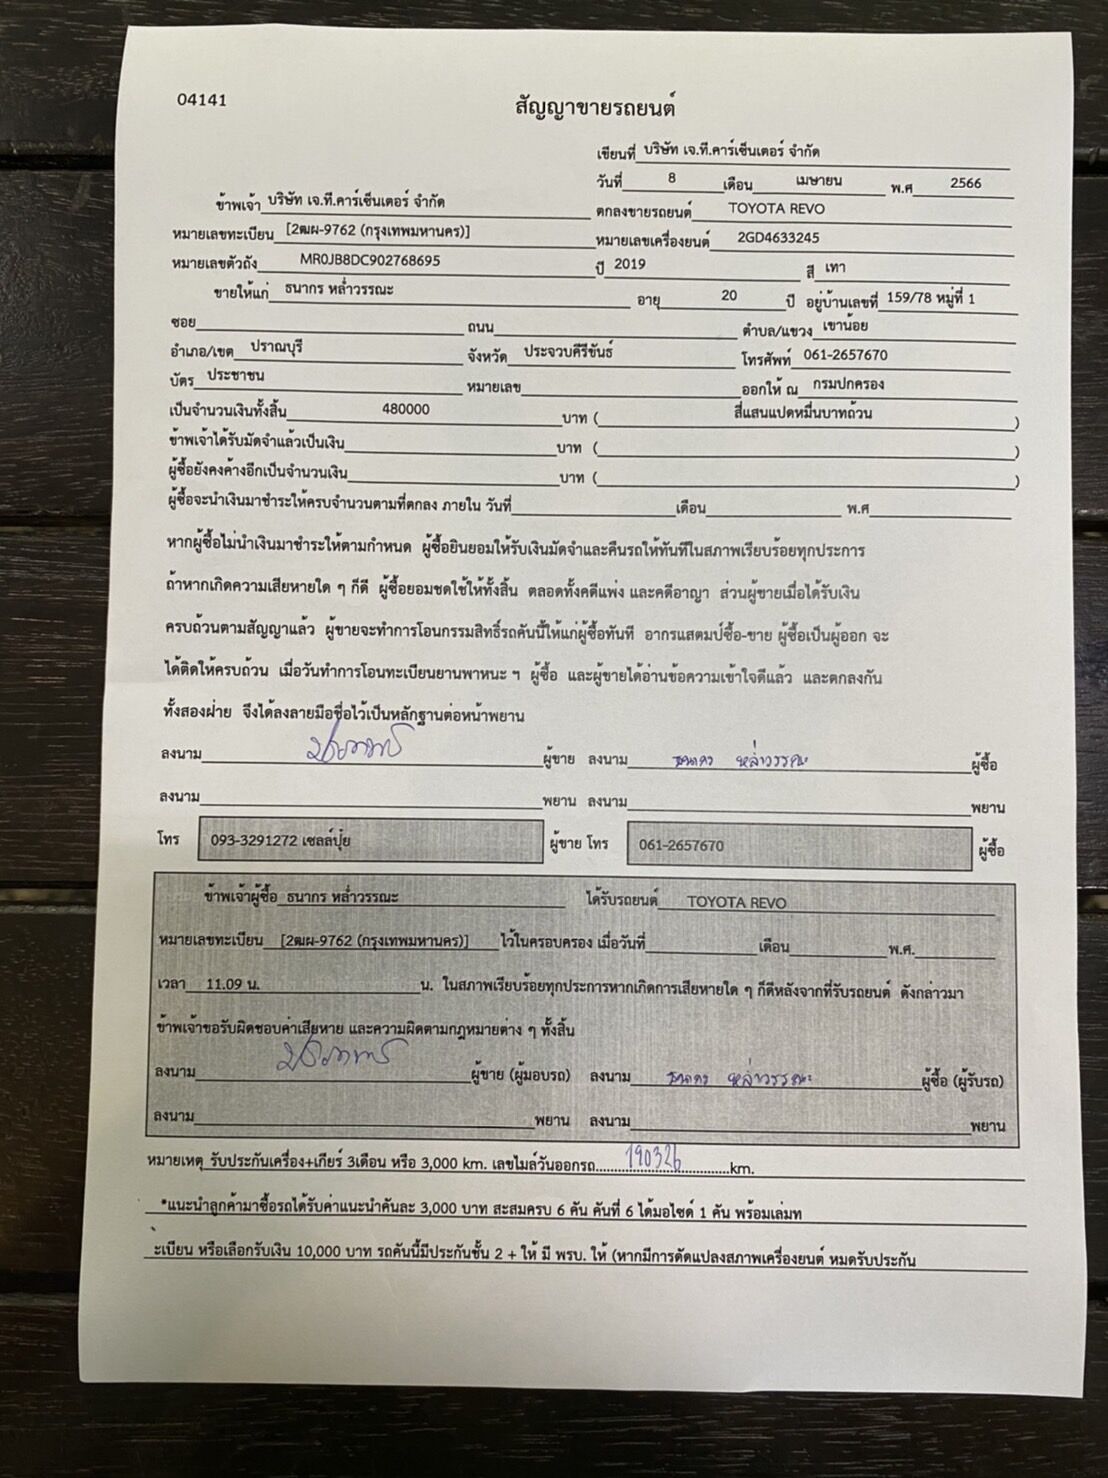 04141
สัญญาขายรถยนต์
เขียนที่ บริษัท เจ.ที.คาร์เซ็นเตอร์ จำกัด
วันที่ 8 เดือน เมษายน พ.ศ 2566
ข้าพเจ้า บริษัท เจ.ที.คาร์เซ็นเตอร์ จำกัด ตกลงขายรถยนต์ TOYOTA REVO
หมายเลขทะเบียน [2ฒผ-9762 (กรุงเทพมหานคร)] หมายเลขเครื่องยนต์ 2GD4633245
หมายเลขตัวถัง MR0JB8DC902768695 ปี 2019 สี เทา
ขายให้แก่ ธนากร หล่ำวรรณะ อายุ 20 ปี อยู่บ้านเลขที่ 159/78 หมู่ที่ 1
ซอย ถนน ตำบล/แขวง เขาน้อย
อำเภอ/เขต ปราณบุรี จังหวัด ประจวบคีรีขันธ์ โทรศัพท์ 061-2657670
บัตร ประชาชน หมายเลข ออกให้ ณ กรมปกครอง
เป็นจำนวนเงินทั้งสิ้น 480000 บาท ( สี่แสนแปดหมื่นบาทถ้วน )
ข้าพเจ้าได้รับมัดจำแล้วเป็นเงิน บาท ( )
ผู้ซื้อยังคงค้างอีกเป็นจำนวนเงิน บาท ( )
ผู้ซื้อจะนำเงินมาชำระให้ครบจำนวนตามที่ตกลง ภายใน วันที่ เดือน พ.ศ
หากผู้ซื้อไม่นำเงินมาชำระให้ตามกำหนด ผู้ซื้อยินยอมให้รับเงินมัดจำและคืนรถให้ทันทีในสภาพเรียบร้อยทุกประการ
ถ้าหากเกิดความเสียหายใด ๆ ก็ดี ผู้ซื้อยอมชดใช้ให้ทั้งสิ้น ตลอดทั้งคดีแพ่ง และคดีอาญา ส่วนผู้ขายเมื่อได้รับเงิน
ครบถ้วนตามสัญญาแล้ว ผู้ขายจะทำการโอนกรรมสิทธิ์รถคันนี้ให้แก่ผู้ซื้อทันที อากรแสตมป์ซื้อ-ขาย ผู้ซื้อเป็นผู้ออก จะ
ได้ติดให้ครบถ้วน เมื่อวันทำการโอนทะเบียนยานพาหนะ ฯ ผู้ซื้อ และผู้ขายได้อ่านข้อความเข้าใจดีแล้ว และตกลงกัน
ทั้งสองฝ่าย จึงได้ลงลายมือชื่อไว้เป็นหลักฐานต่อหน้าพยาน
ลงนาม ผู้ขาย ลงนาม ธนากร หล่ำวรรณะ ผู้ซื้อ
ลงนาม พยาน ลงนาม พยาน
โทร 093-3291272 เซลล์ปุ๋ย ผู้ขาย โทร 061-2657670 ผู้ซื้อ
ข้าพเจ้าผู้ซื้อ ธนากร หล่ำวรรณะ ได้รับรถยนต์ TOYOTA REVO
หมายเลขทะเบียน [2ฒผ-9762 (กรุงเทพมหานคร)] ไว้ในครอบครอง เมื่อวันที่ เดือน พ.ศ.
เวลา 11.09 น. น. ในสภาพเรียบร้อยทุกประการหากเกิดการเสียหายใด ๆ ก็ดีหลังจากที่รับรถยนต์ ดังกล่าวมา
ข้าพเจ้าขอรับผิดชอบค่าเสียหาย และความผิดตามกฎหมายต่าง ๆ ทั้งสิ้น
ลงนาม ผู้ขาย (ผู้มอบรถ) ลงนาม ธนากร หล่ำวรรณะ ผู้ซื้อ (ผู้รับรถ)
ลงนาม พยาน ลงนาม พยาน
หมายเหตุ รับประกันเครื่อง+เกียร์ 3เดือน หรือ 3,000 km. เลขไมล์วันออกรถ 190326 km.
*แนะนำลูกค้ามาซื้อรถได้รับค่าแนะนำคันละ 3,000 บาท สะสมครบ 6 คัน คันที่ 6 ได้มอไซด์ 1 คัน พร้อมเล่มท
ะเบียน หรือเลือกรับเงิน 10,000 บาท รถคันนี้มีประกันชั้น 2 + ให้ มี พรบ. ให้ (หากมีการดัดแปลงสภาพเครื่องยนต์ หมดรับประกัน